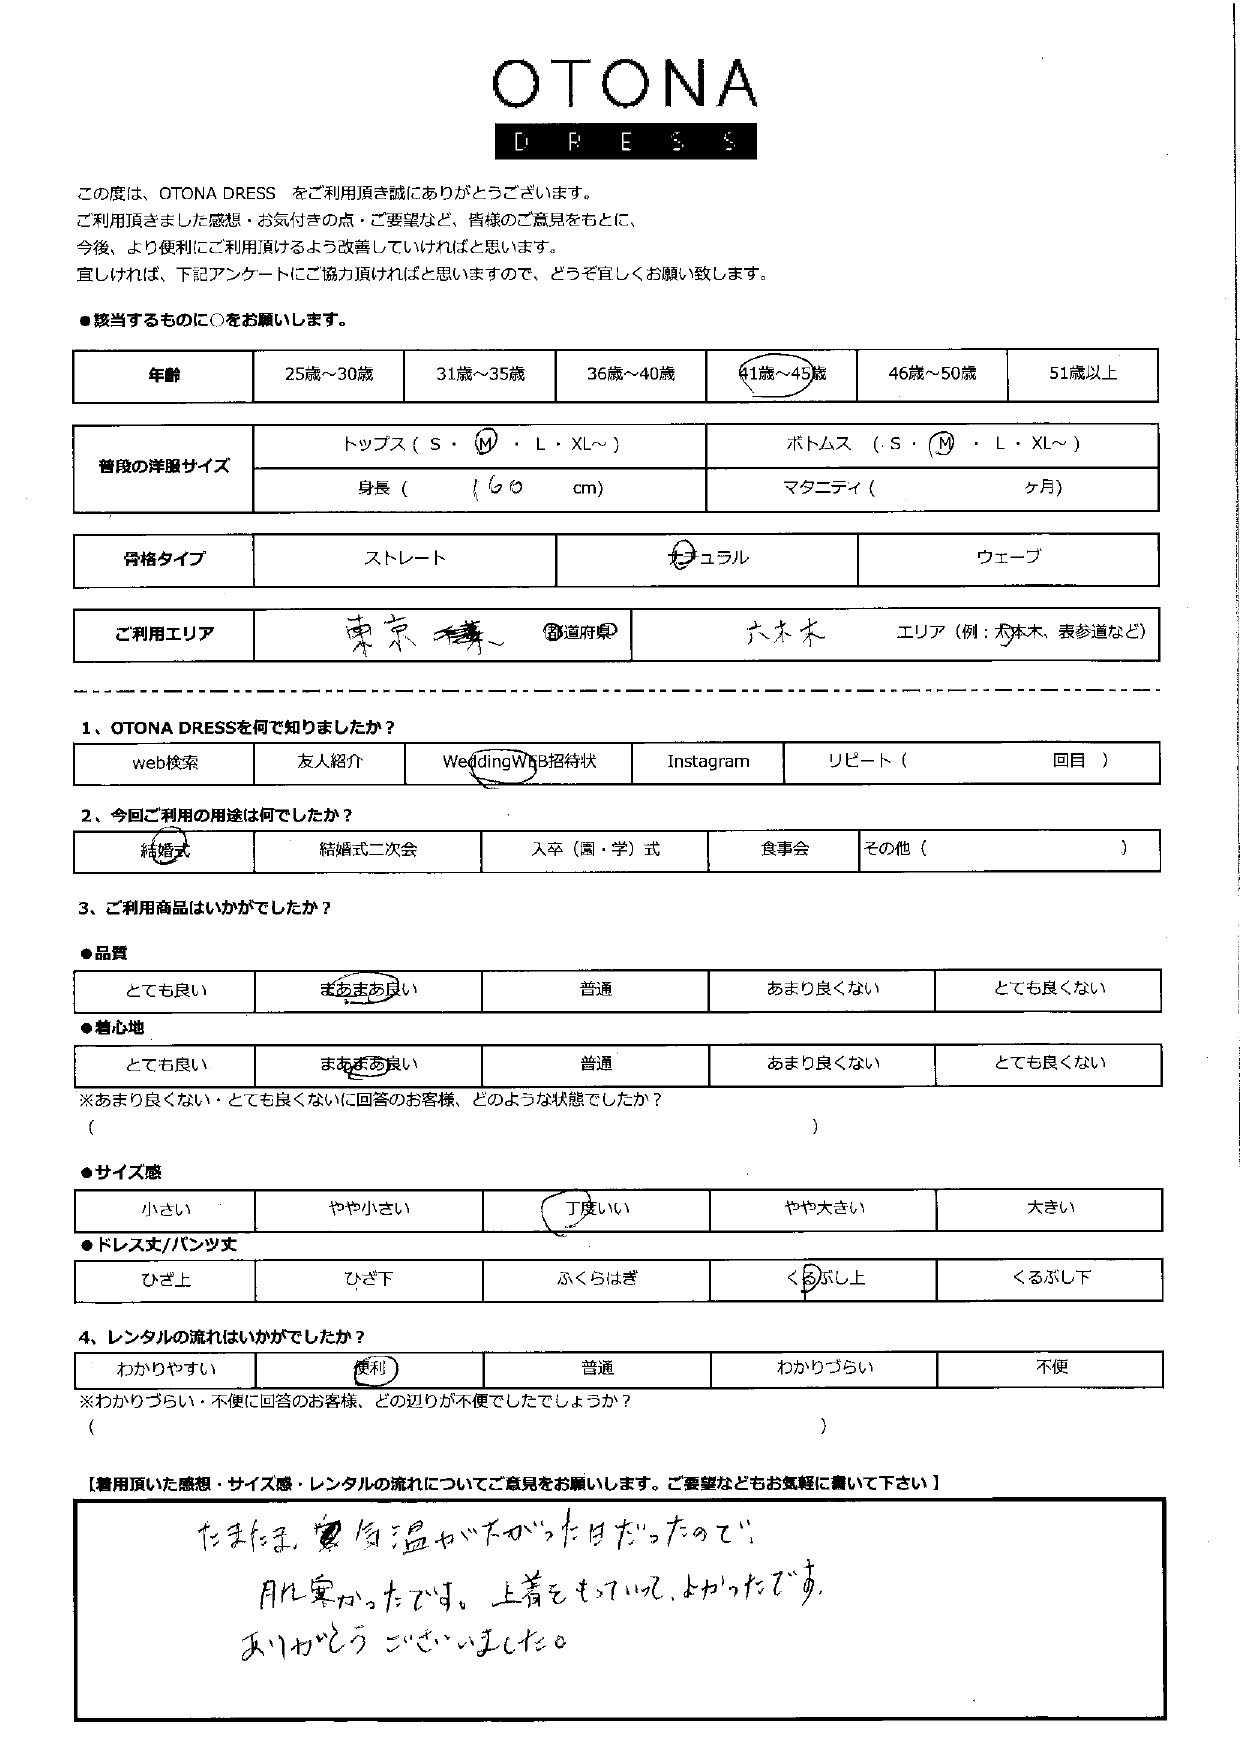 OTONA
DRESS
この度は、OTONA DRESS をご利用頂き誠にありがとうございます。
ご利用頂きました感想・お気付きの点・ご要望など、皆様のご意見をもとに、
今後、より便利にご利用頂けるよう改善していければと思います。
宜しければ、下記アンケートにご協力頂ければと思いますので、どうぞ宜しくお願い致します。
●該当するものに○をお願いします。
年齢 25歳～30歳 31歳～35歳 36歳～40歳 41歳～45歳 46歳～50歳 51歳以上
普段の洋服サイズ
トップス ( S ・ M ・ L ・ XL～ ) ボトムス ( S ・ M ・ L ・ XL～ )
身長 ( 160 cm) マタニティ ( ケ月)
骨格タイプ ストレート ナチュラル ウェーブ
ご利用エリア 東京 都道府県 六本木 エリア（例：六本木、表参道など）
1、OTONA DRESSを何で知りましたか？
web検索 友人紹介 WeddingWEB招待状 Instagram リピート ( 回目 )
2、今回ご利用の用途は何でしたか？
結婚式 結婚式二次会 入卒（園・学）式 食事会 その他 ( )
3、ご利用商品はいかがでしたか？
●品質
とても良い まあまあ良い 普通 あまり良くない とても良くない
●着心地
とても良い まあまあ良い 普通 あまり良くない とても良くない
※あまり良くない・とても良くないに回答のお客様、どのような状態でしたか？
( )
●サイズ感
小さい やや小さい 丁度いい やや大きい 大きい
●ドレス丈/パンツ丈
ひざ上 ひざ下 ふくらはぎ くるぶし上 くるぶし下
4、レンタルの流れはいかがでしたか？
わかりやすい 便利 普通 わかりづらい 不便
※わかりづらい・不便に回答のお客様、どの辺りが不便でしたでしょうか？
( )
【着用頂いた感想・サイズ感・レンタルの流れについてご意見をお願いします。ご要望などもお気軽に書いて下さい】
たまたま、気温が下がった日だったので、
肌寒かったです。上着をもっていって、よかったです。
ありがとうございました。